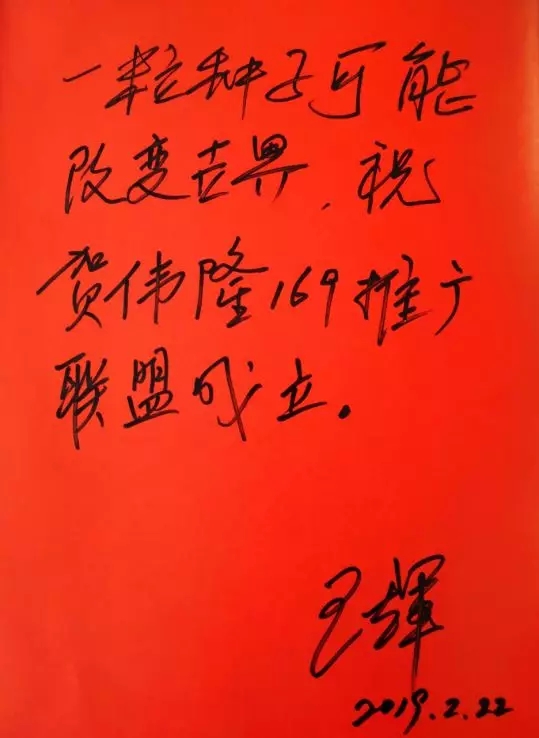 一粒种子可能
改变世界，祝
贺伟隆169推广
联盟成立。
王辉
2019.2.22